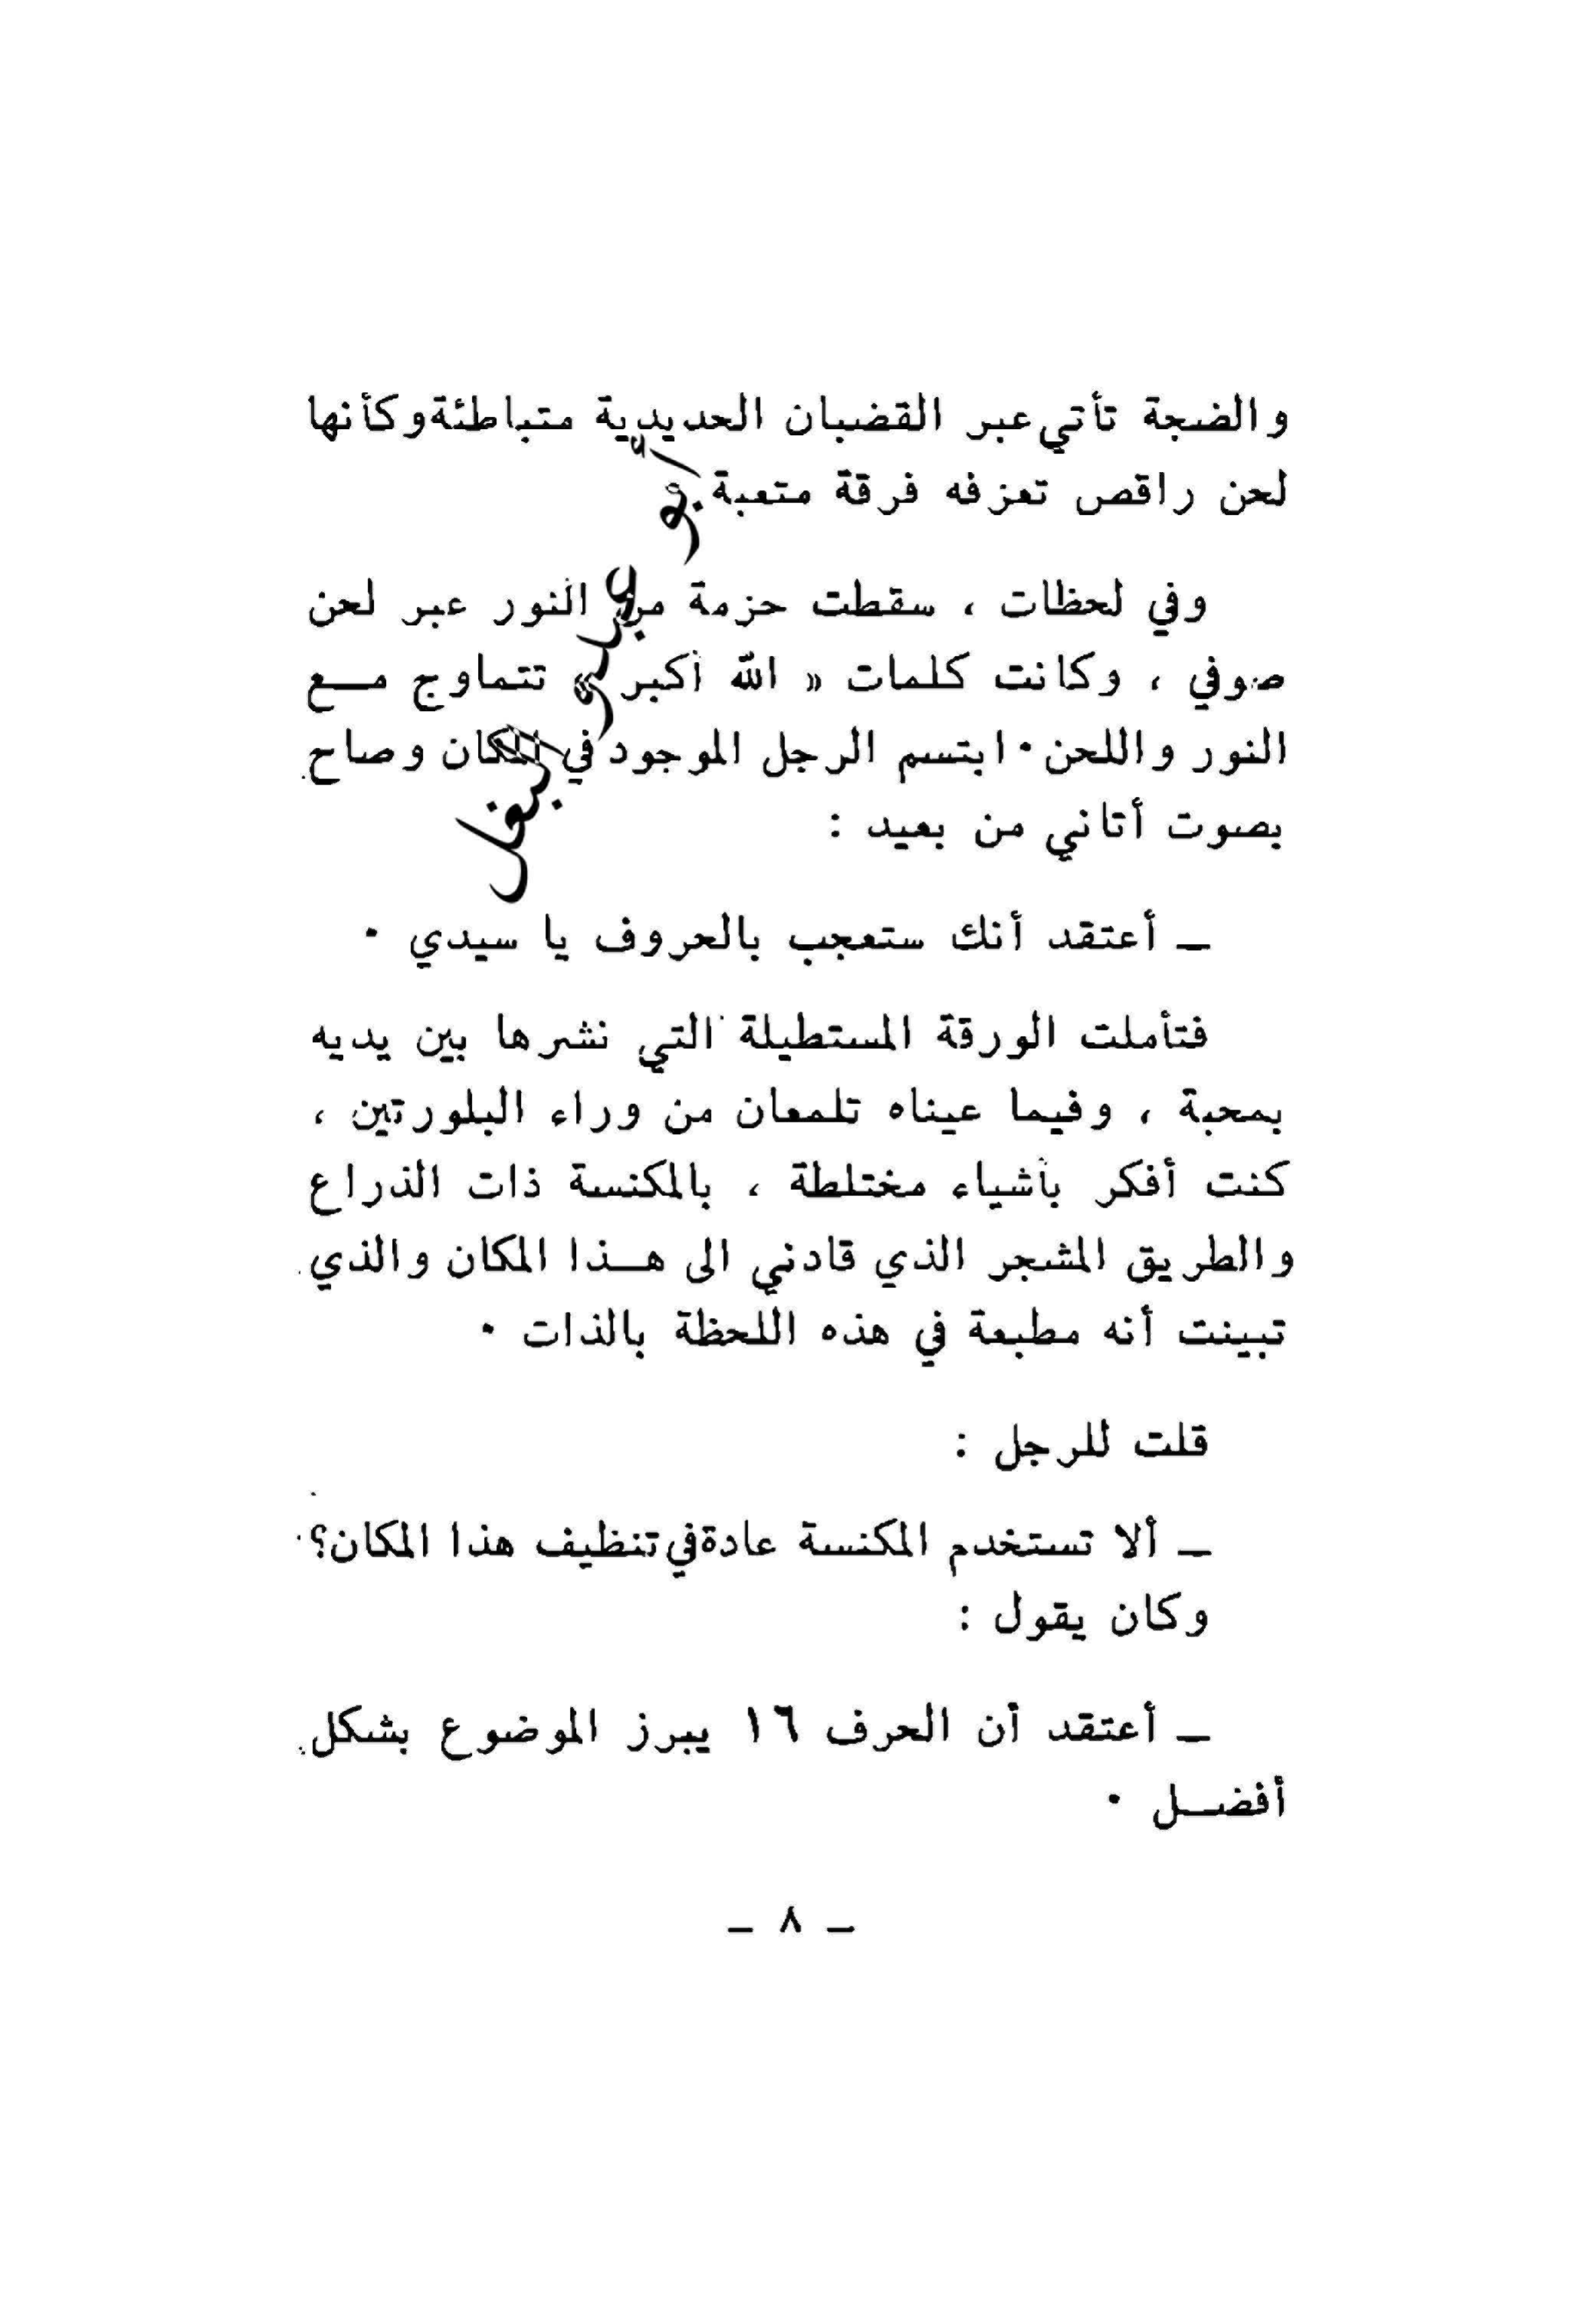 والضجة تأتي عبر القضبان الحديدية متباطئة وكأنها
لحن راقص تعزفه فرقة متعبة
وفي لحظات ، سقطت حزمة من النور عبر لحن
صوفي ، وكانت كلمات « الله أكبر » تتماوج مـــع
النور واللحن ٠ ابتسم الرجل الموجود في المكان وصاح
بصوت أتاني من بعيد :
ـ أعتقد أنك ستعجب بالحروف يا سيدي ٠
فتأملت الورقة المستطيلة التي نشرها بين يديه
بمحبة ، وفيما عيناه تلمعان من وراء البلورتين ،
كنت أفكر بأشياء مختلطة ، بالمكنسة ذات الذراع
والطريق المشجر الذي قادني الى هـــذا المكان والذي
تبينت أنه مطبعة في هذه اللحظة بالذات ٠
قلت للرجل :
ـ ألا تستخدم المكنسة عادة في تنظيف هذا المكان؟
وكان يقول :
ـ أعتقد أن الحرف ١٦ يبرز الموضوع بشكل
أفضـــل ٠
ـ ٨ ـ
أبو عبدو البغل